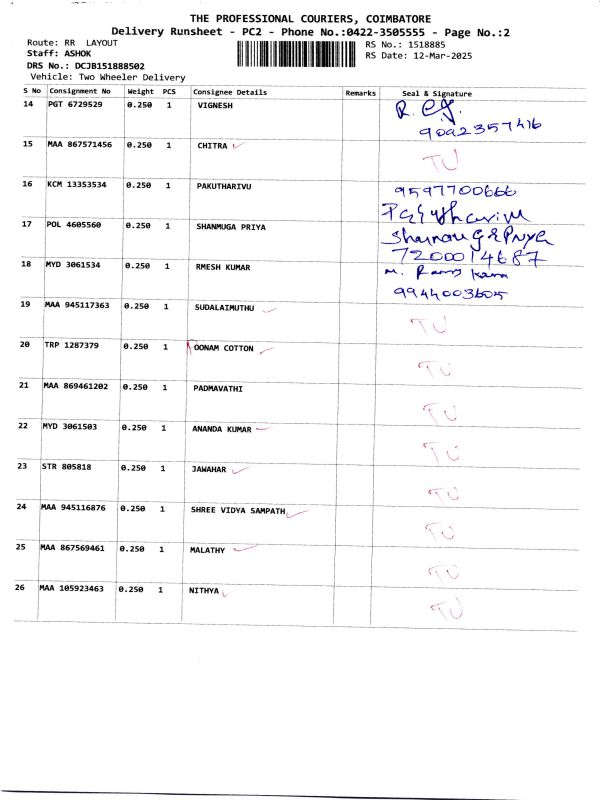 THE PROFESSIONAL COURIERS, COIMBATORE
Delivery Runsheet - PC2 - Phone No.:0422-3505555 - Page No.:2
Route: RR LAYOUT
RS No.: 1518885
Staff: ASHOK
RS Date: 12-Mar-2025
DRS No.: DCJB151888502
Vehicle: Two Wheeler Delivery
S No Consignment No Weight PCS Consignee Details Remarks Seal & Signature
14 PGT 6729529 0.250 1 VIGNESH
9092357416
15 MAA 867571456 0.250 1 CHITRA TU
16 KCM 13353534 0.250 1 PAKUTHARIVU 9597700666
Pakutharivu
17 POL 4605560 0.250 1 SHANMUGA PRIYA Shanmuga Priya
7200014687
18 MYD 3061534 0.250 1 RMESH KUMAR
9944003605
19 MAA 945117363 0.250 1 SUDALAIMUTHU TU
20 TRP 1287379 0.250 1 OONAM COTTON TU
21 MAA 869461202 0.250 1 PADMAVATHI TU
22 MYD 3061503 0.250 1 ANANDA KUMAR TU
23 STR 805818 0.250 1 JAWAHAR TU
24 MAA 945116876 0.250 1 SHREE VIDYA SAMPATH TU
25 MAA 867569461 0.250 1 MALATHY TU
26 MAA 105923463 0.250 1 NITHYA TU